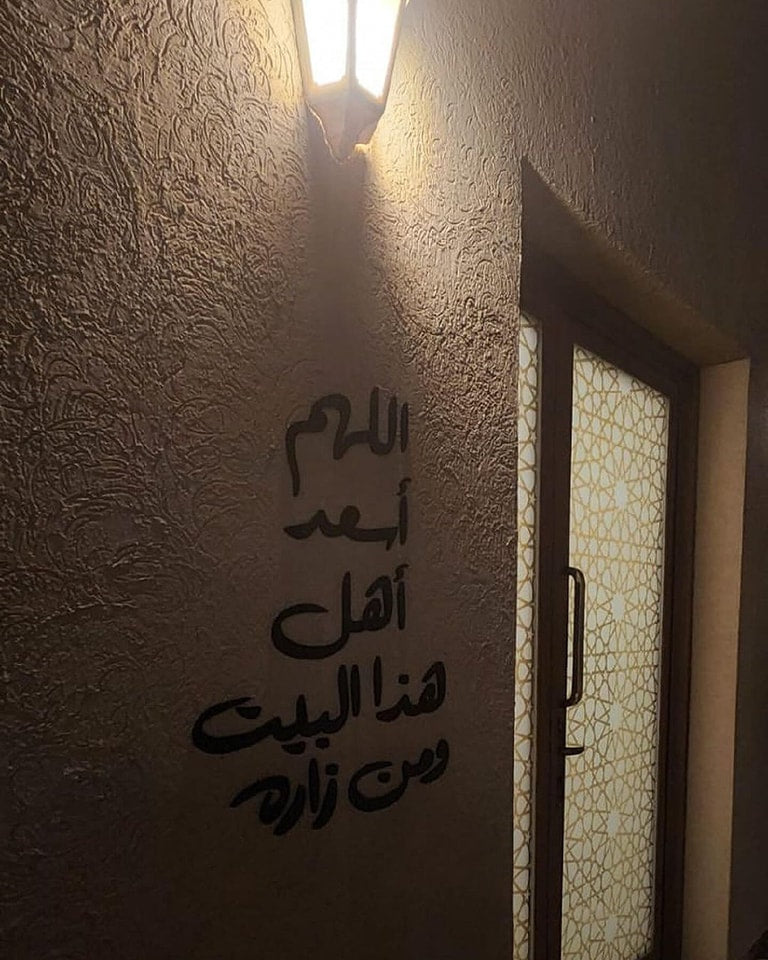 اللهم
أسعد
أهل
هذا البيت
ومن زاره